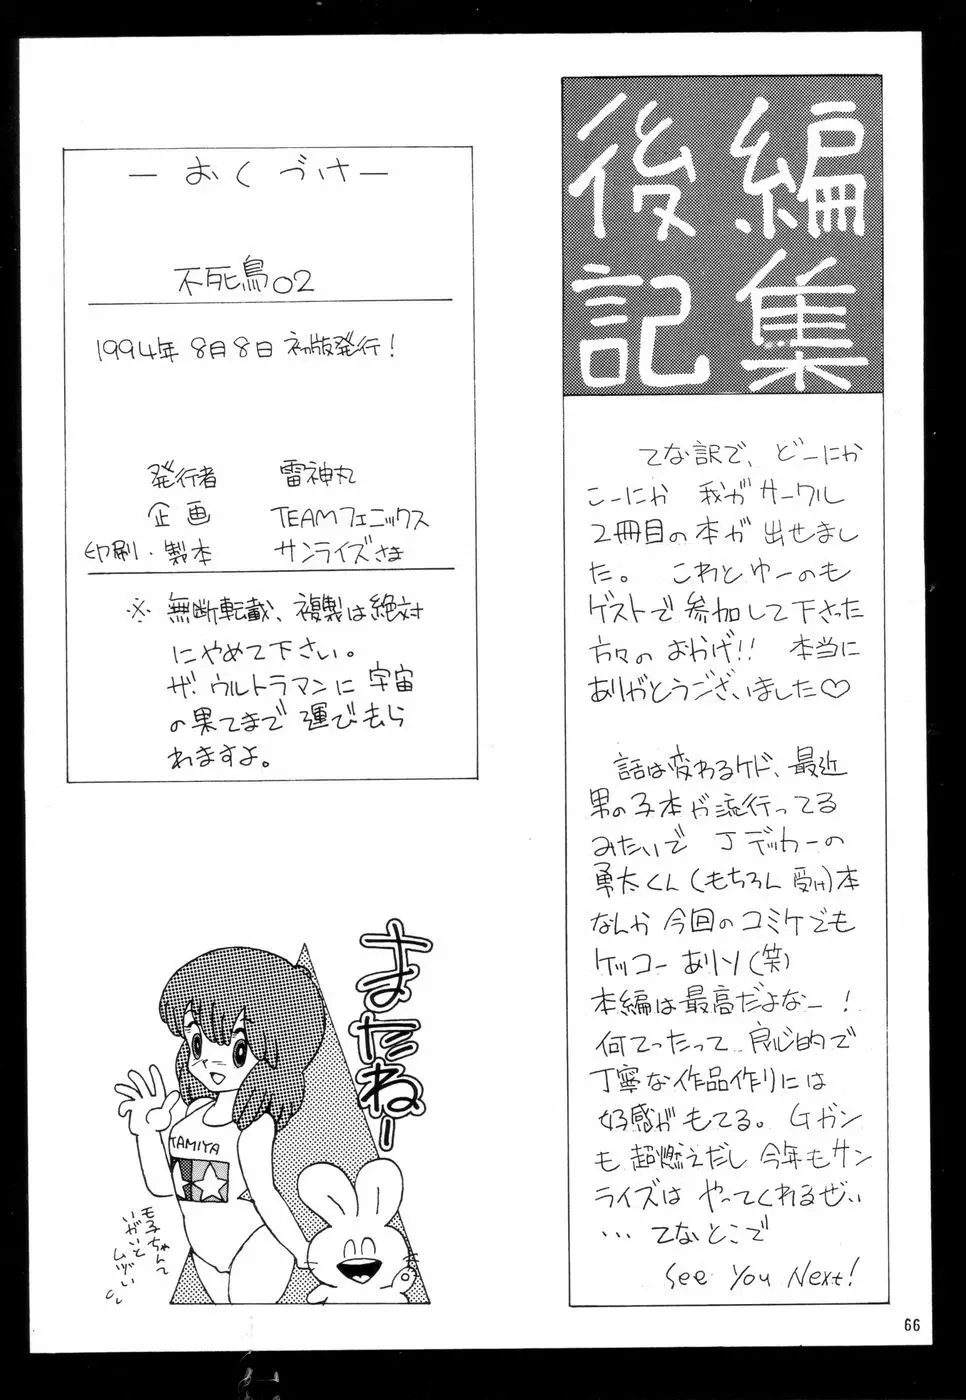 編集
後記
てな訳で、どーにか
こーにか 我がサークル
2冊目の本が 出せまし
た。 これとゆーのも
ゲストで参加して下さった
方々のおかげ!! 本当に
ありがとうございました♡
話は変わるケド、最近
男の子本が流行ってる
みたいで Jデッカーの
勇太くん(もちろん 受け)本
なんか 今回のコミケでも
ケッコー ありソ(笑)
本編は最高だよなー!
何てったって 良心的で
丁寧な作品作りには
好感がもてる。Gガン
も 超燃えだし 今年もサン
ライズは やってくれるぜい
… てなとこで
See You Next!
－おくづけ－
不死鳥02
1994年 8月8日 初版発行!
発行者 雷神丸
企画 TEAMフェニックス
印刷・製本 サンライズさま
※ 無断転載、複製は絶対
にやめて下さい。
ザ・ウルトラマンに 宇宙
の果てまで 運び去ら
れますよ。
まったねー
TAMIYA
モ子ちゃんて
いがいと
ムヅい
66